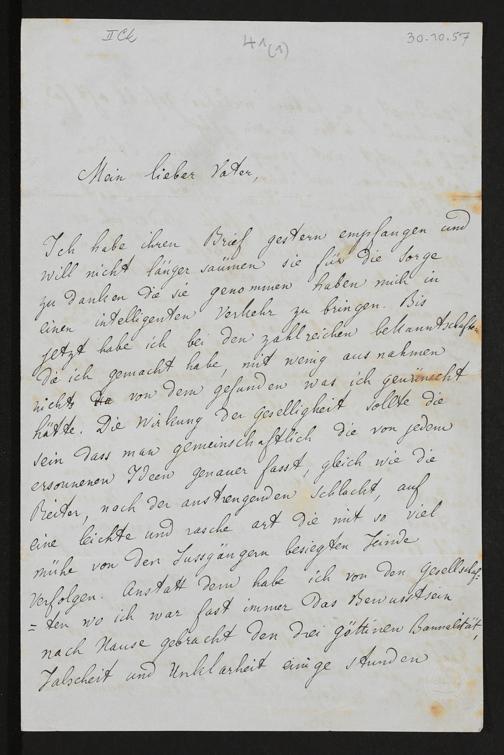 II Ck 41(1) 30.10.57
Mein lieber Vater,
Ich habe ihren Brief gestern empfangen und
will nicht länger säumen sie für die Sorge
zu danken die sie genommen haben mich in
einen intelligenten Verkehr zu bringen. Bis
jetzt habe ich bei den zahlreichen bekanntschaften
die ich gemacht habe, mit wenig ausnahmen
nichts von dem gefunden was ich gewünscht
hätte. Die Wirkung der Geselligheit sollte die
sein dass man gemeinschaftlich die von jedem
ersonnenen Ideen genauer fasst, gleich wie die
Reiter, nach der anstrengenden Schlacht, auf
eine leichte und rasche art die mit so viel
mühe von den Fussgängern besiegten Feinde
verfolgen. Anstatt dem habe ich von den Gesellschaf=
=ten wo ich war fast immer das Bewusstsein
nach Hause gebracht den drei göttinen Bannalität
Falscheit und Unklarheit einige stunden